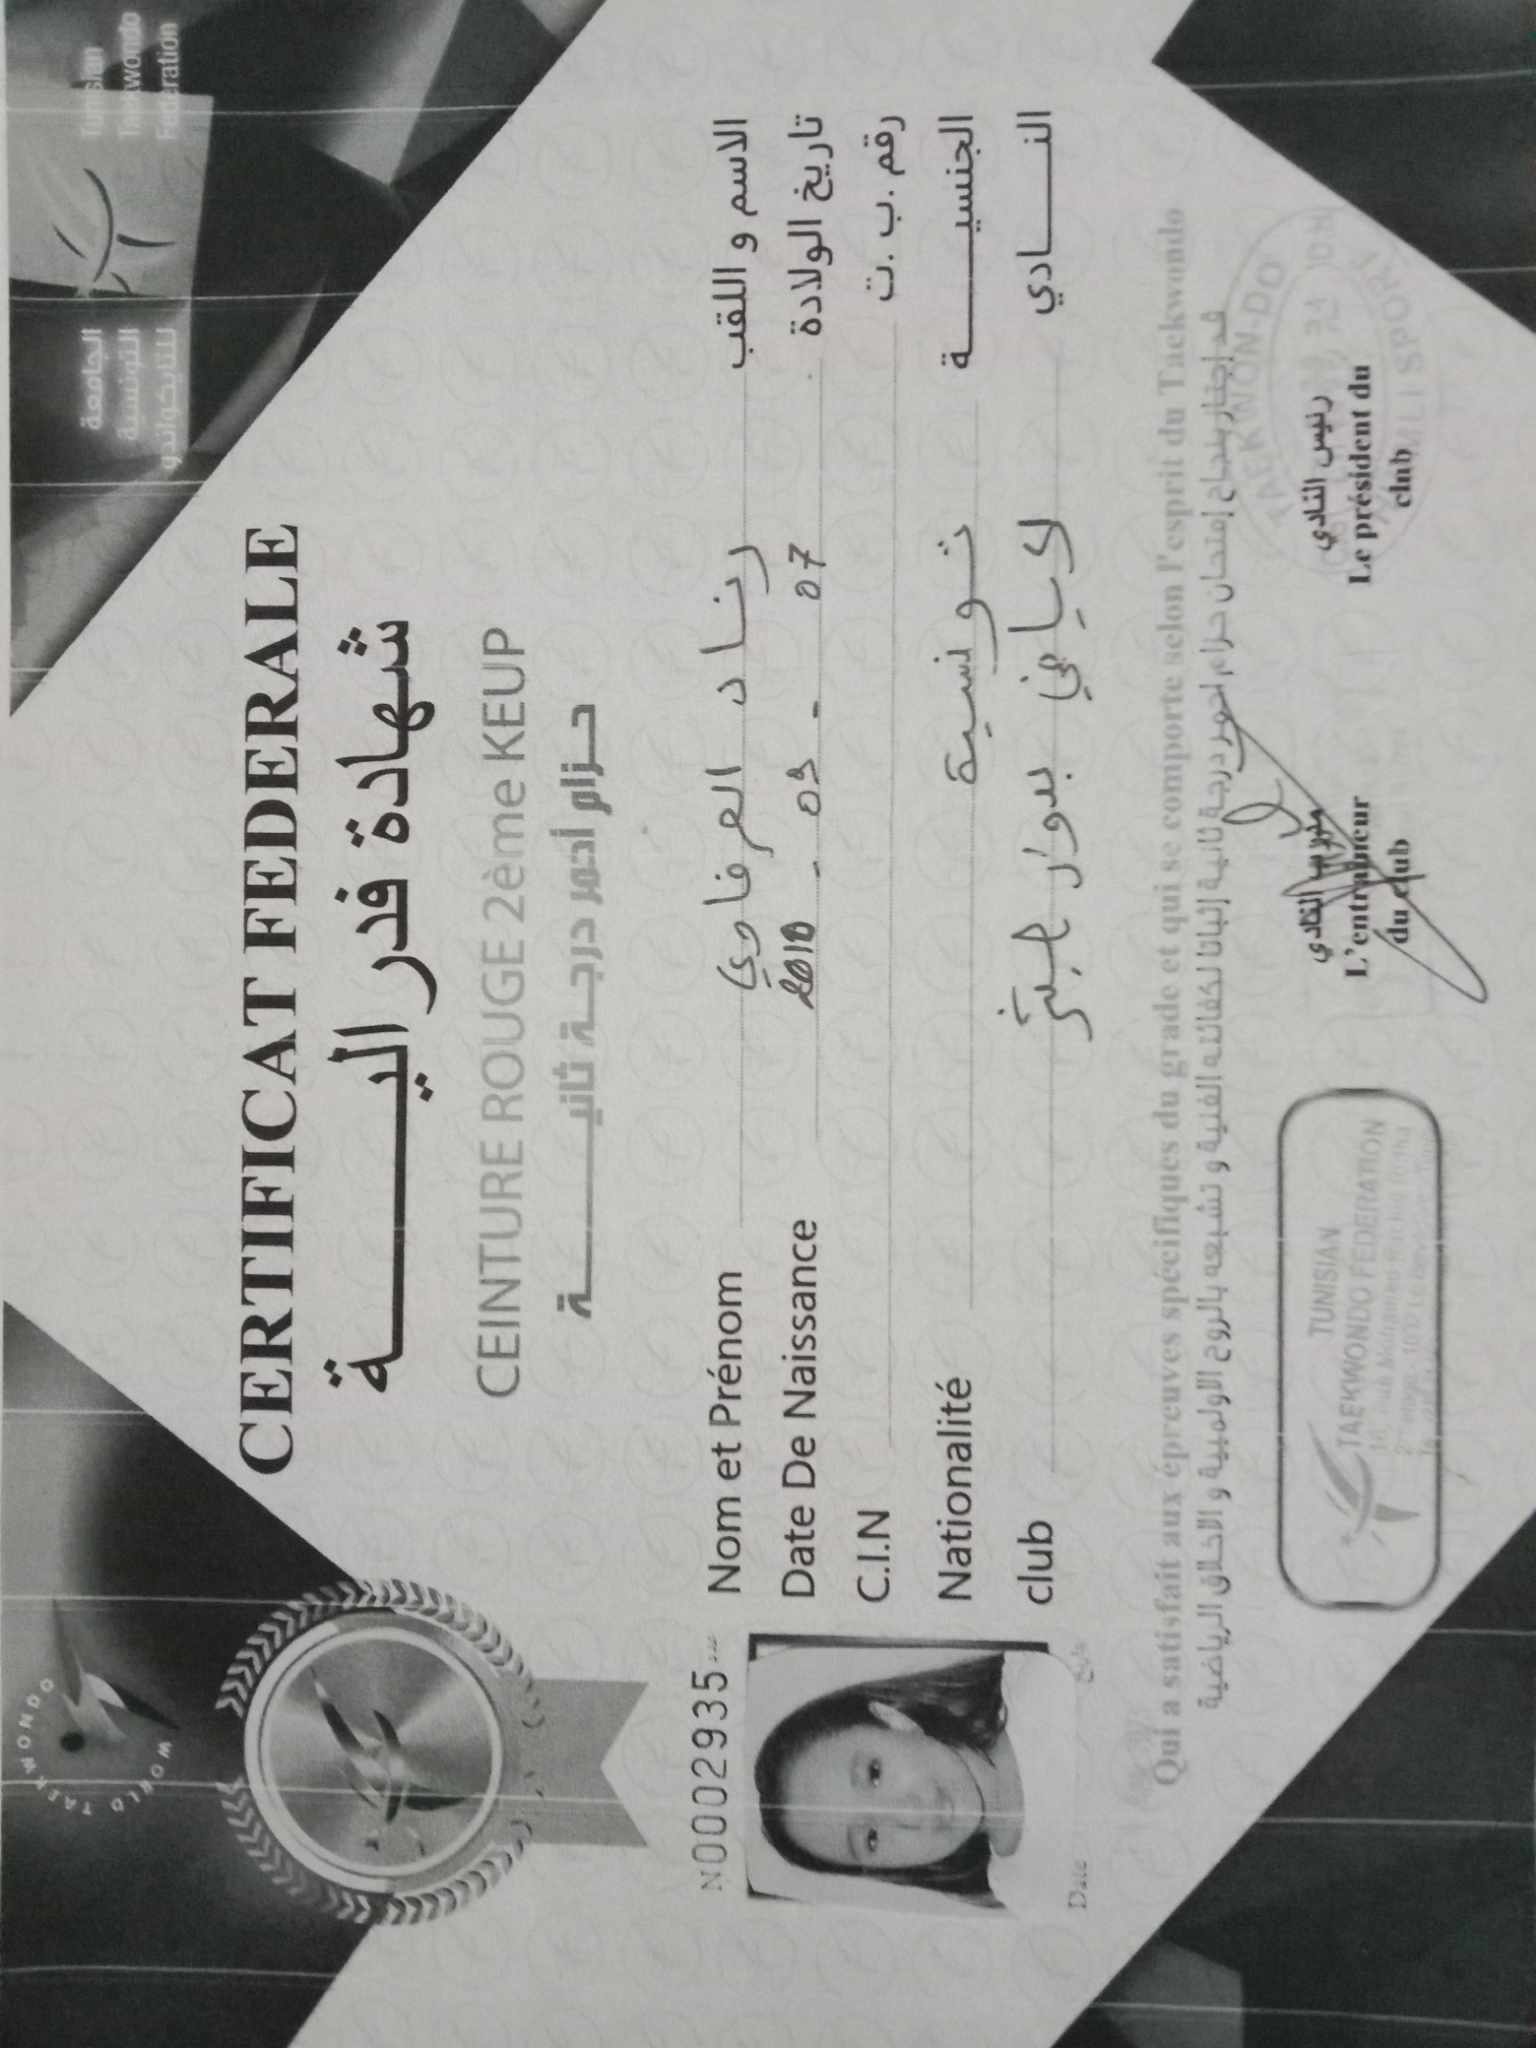 WORLD TAEKWONDO
الجامعة
التونسية
للتايكواندو
Tunisian
Taekwondo
Federation
CERTIFICAT FEDERALE
شهادة فدراليـــــة
CEINTURE ROUGE 2ème KEUP
حزام أحمر درجة ثانيـــــة
N0002935
Nom et Prénom رناد العرفاوي الاسم و اللقب
Date De Naissance 2010 - 09 - 07 تاريخ الولادة
C.I.N رقم .ب .ت
Nationalité تونسية الجنسيـــــة
club النـــــادي
Date
Qui a satisfait aux épreuves spécifiques du grade et qui se comporte selon l'esprit du Taekwondo
قد إجتاز بنجاح إمتحان حزام احمر درجة ثانية إثباتا لكفائته الفنية و تشبعه بالروح الاولمبية و الاخلاق الرياضية
TUNISIAN
TAEKWONDO FEDERATION
مدرب النادي
L'entraineur
du club
رئيس النادي
Le président du
club
TAEKWON-DO